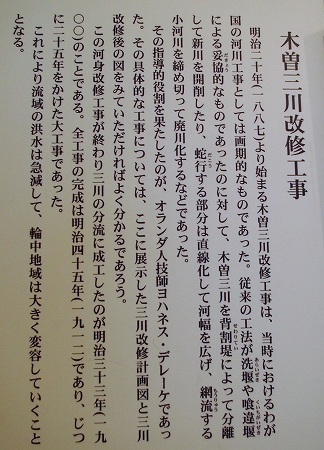 木曽三川改修工事
明治二十年(一八八七)より始まる木曽三川改修工事は、当時におけるわが
国の河川工事としては画期的なものであった。従来の工法が洗堰や喰違堰
による妥協的なものであったのに対して、木曽三川を背割堤によって分離
して新川を開削したり、蛇行する部分は直線化して河幅を広げ、網流する
小河川を締め切って廃川化するなどであった。
その指導的役割を果たしたのが、オランダ人技師ヨハネス・デレーケであっ
た。その具体的な工事については、ここに展示した三川改修計画図と三川
改修後の図をみていただければよく分かるであろう。
この河身改修工事が終わり三川の分流に成工したのが明治三十三年(一九
〇〇)のことである。全工事の完成は明治四十五年(一九一二)であり、じつ
に二十五年をかけた大工事であった。
これにより流域の洪水は急減して、輪中地域は大きく変容していくこと
となる。